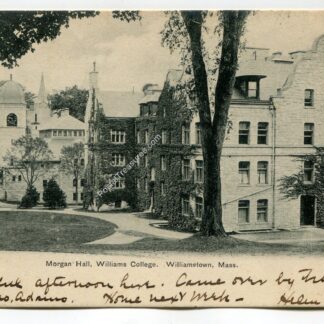 Morgan Hall, Williams College. Williamstown, Mass.
afternoon here. Came over by the
Adams. Home next week — Helen